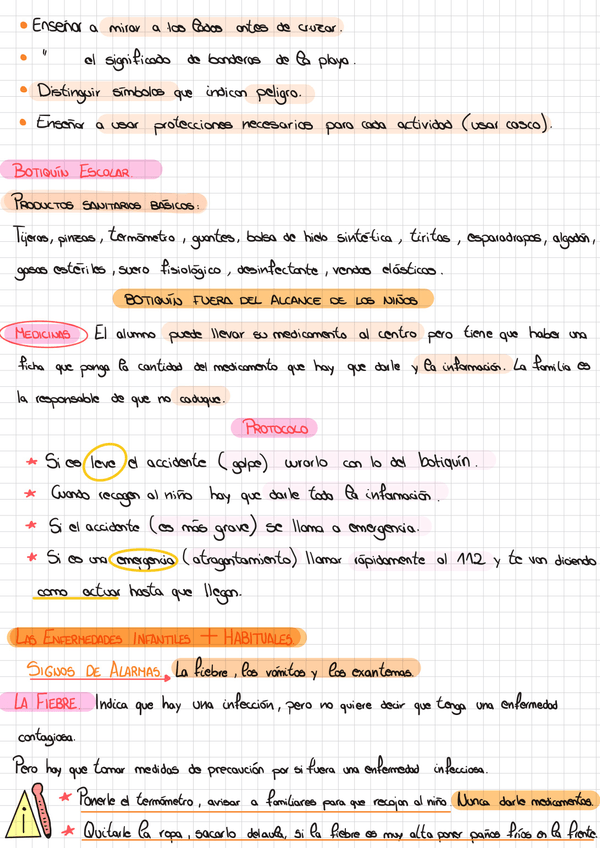 • Enseñar a mirar a los lados antes de cruzar.
• " el significado de banderas de la playa.
• Distinguir símbolos que indican peligro.
• Enseñar a usar protecciones necesarias para cada actividad (usar casco).
BOTIQUÍN ESCOLAR.
PRODUCTOS SANITARIOS BÁSICOS:
Tijeras, pinzas, termómetro, guantes, bolsa de hielo sintética, tiritas, esparadrapos, algodón,
gasas estériles, suero fisiológico, desinfectante, vendas elásticas.
BOTIQUÍN FUERA DEL ALCANCE DE LOS NIÑOS
MEDICINAS El alumno puede llevar su medicamento al centro pero tiene que haber una
ficha que ponga la cantidad del medicamento que hay que darle y la información. La familia es
la responsable de que no caduque.
PROTOCOLO
★ Si es leve el accidente (golpe) curarlo con lo del botiquín.
★ Cuando recogen al niño hay que darle toda la información.
★ Si el accidente (es más grave) se llama a emergencia.
★ Si es una emergencia (atragantamiento) llamar rápidamente al 112 y te van diciendo
como actuar hasta que llegan.
LAS ENFERMEDADES INFANTILES + HABITUALES
SIGNOS DE ALARMAS. La fiebre, los vómitos y los exantemas.
LA FIEBRE. Indica que hay una infección, pero no quiere decir que tenga una enfermedad
contagiosa.
Pero hay que tomar medidas de precaución por si fuera una enfermedad infecciosa.
★ Ponerle el termómetro, avisar a familiares para que recojan al niño. Nunca darle medicamentos.
★ Quitarle la ropa, sacarlo del aula, si la fiebre es muy alta poner paños fríos en la frente.